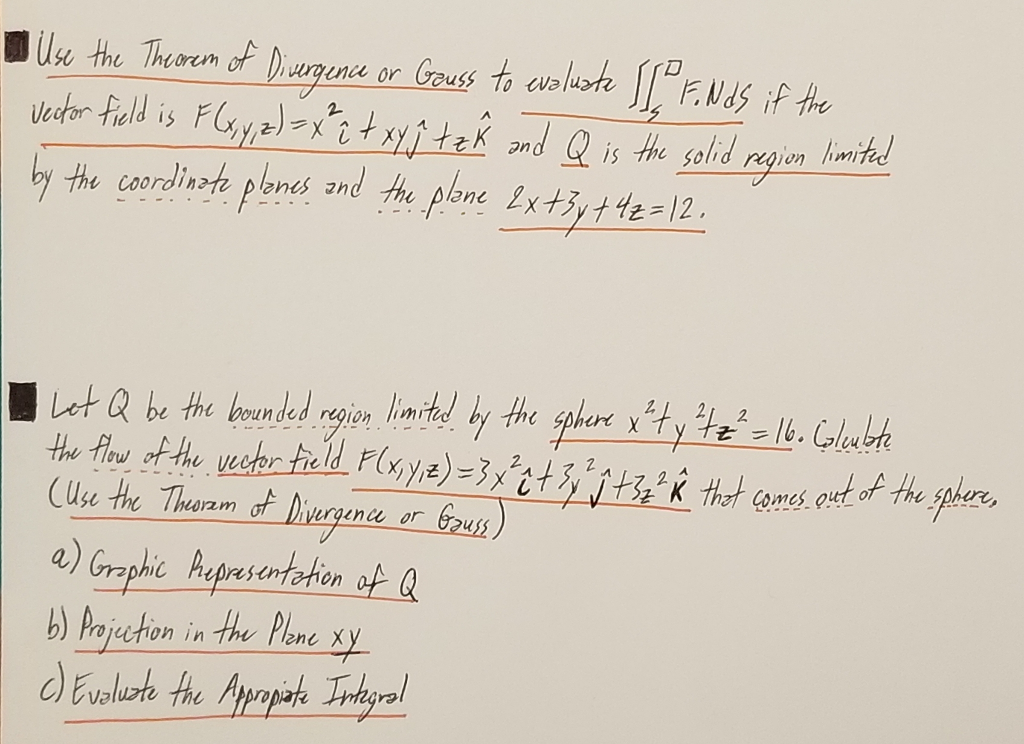 Use the Theorem of Divergence or Gauss to evaluate ∬ₛ F.NdS if the
vector field is F(x,y,z)=x²î+xyĵ+zk̂ and Q is the solid region limited
by the coordinate planes and the plane 2x+3y+4z=12.
Let Q be the bounded region limited by the sphere x²+y²+z²=16. Calculate
the flow of the vector field F(x,y,z)=3x²î+3y²ĵ+3z²k̂ that comes out of the sphere.
(Use the Theorem of Divergence or Gauss)
a) Graphic Representation of Q
b) Projection in the Plane xy
c) Evaluate the Appropiate Integral